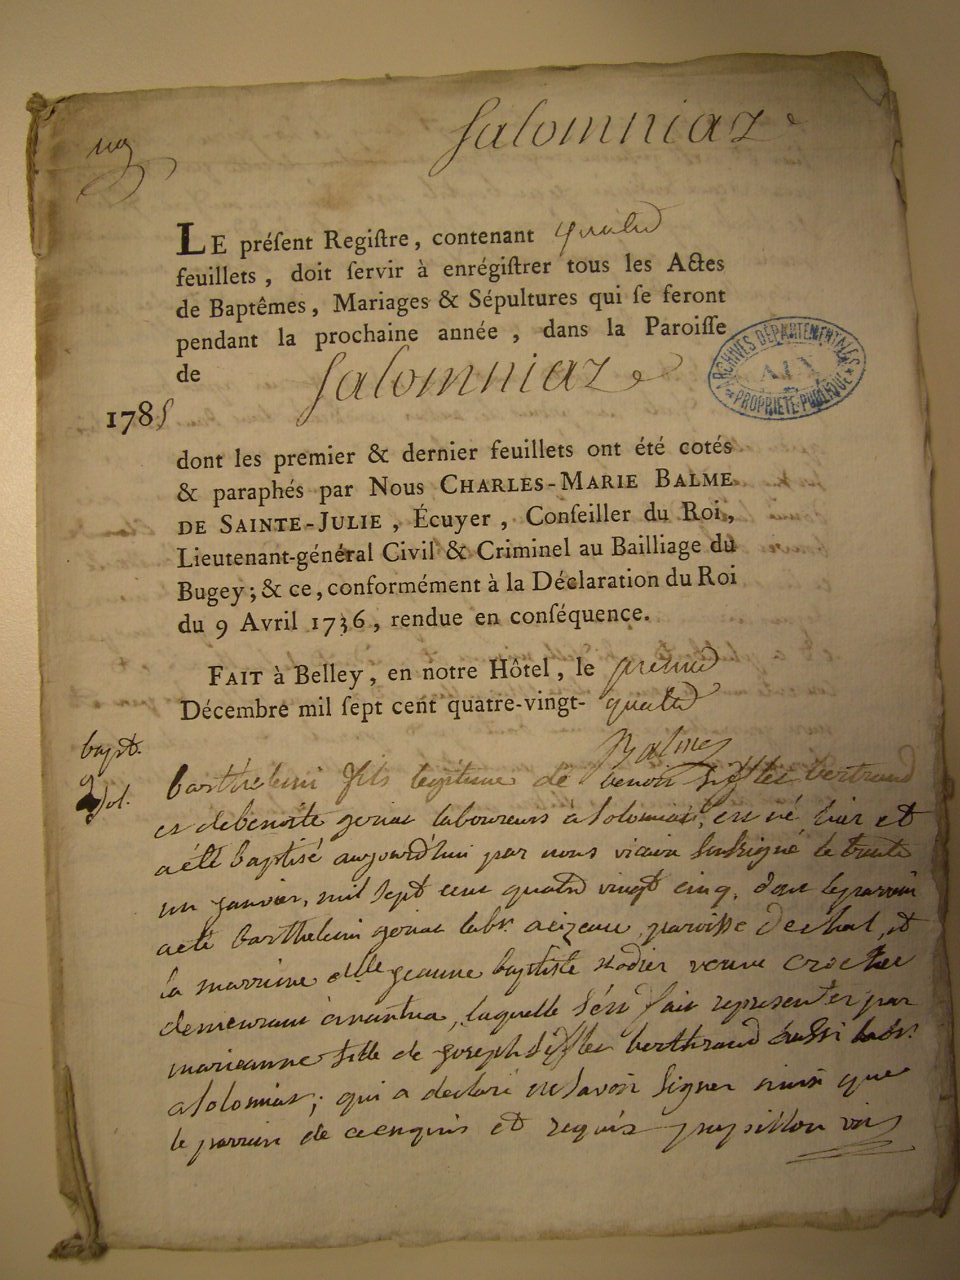 Salomniaz
LE préſent Regiſtre, contenant quatre
feuillets, doit ſervir à enrégiſtrer tous les Actes
de Baptêmes, Mariages & Sépultures qui ſe feront
pendant la prochaine année, dans la Paroiſſe
de Salomniaz
1785
ARCHIVES DÉPARTEMENTALES
AIN
PROPRIÉTÉ PUBLIQUE
dont les premier & dernier feuillets ont été cotés
& paraphés par Nous CHARLES-MARIE BALME
DE SAINTE-JULIE, Écuyer, Conſeiller du Roi,
Lieutenant-général Civil & Criminel au Bailliage du
Bugey; & ce, conformément à la Déclaration du Roi
du 9 Avril 1736, rendue en conſéquence.
FAIT à Belley, en notre Hôtel, le premier
Décembre mil ſept cent quatre-vingt- quatre
Balme
bapt.
barthelemi fils legitime de benoit bertrand
et de benoite laboureurs à solomiat, est né hier et
a été baptisé aujourd'hui par nous vicaire soussigné le trente
un janvier, mil sept cent quatre vingt cinq, dont le parrain
a été barthelemi labr. paroisse de et
la marraine dlle jeanne baptiste veuve
demeurant à nantua, laquelle s'en fait representer par
marianne fille de joseph berthrand aussi labr.
a solomiat; qui a declaré ne savoir signer ainsi que
le parrain de ce enquis et requis